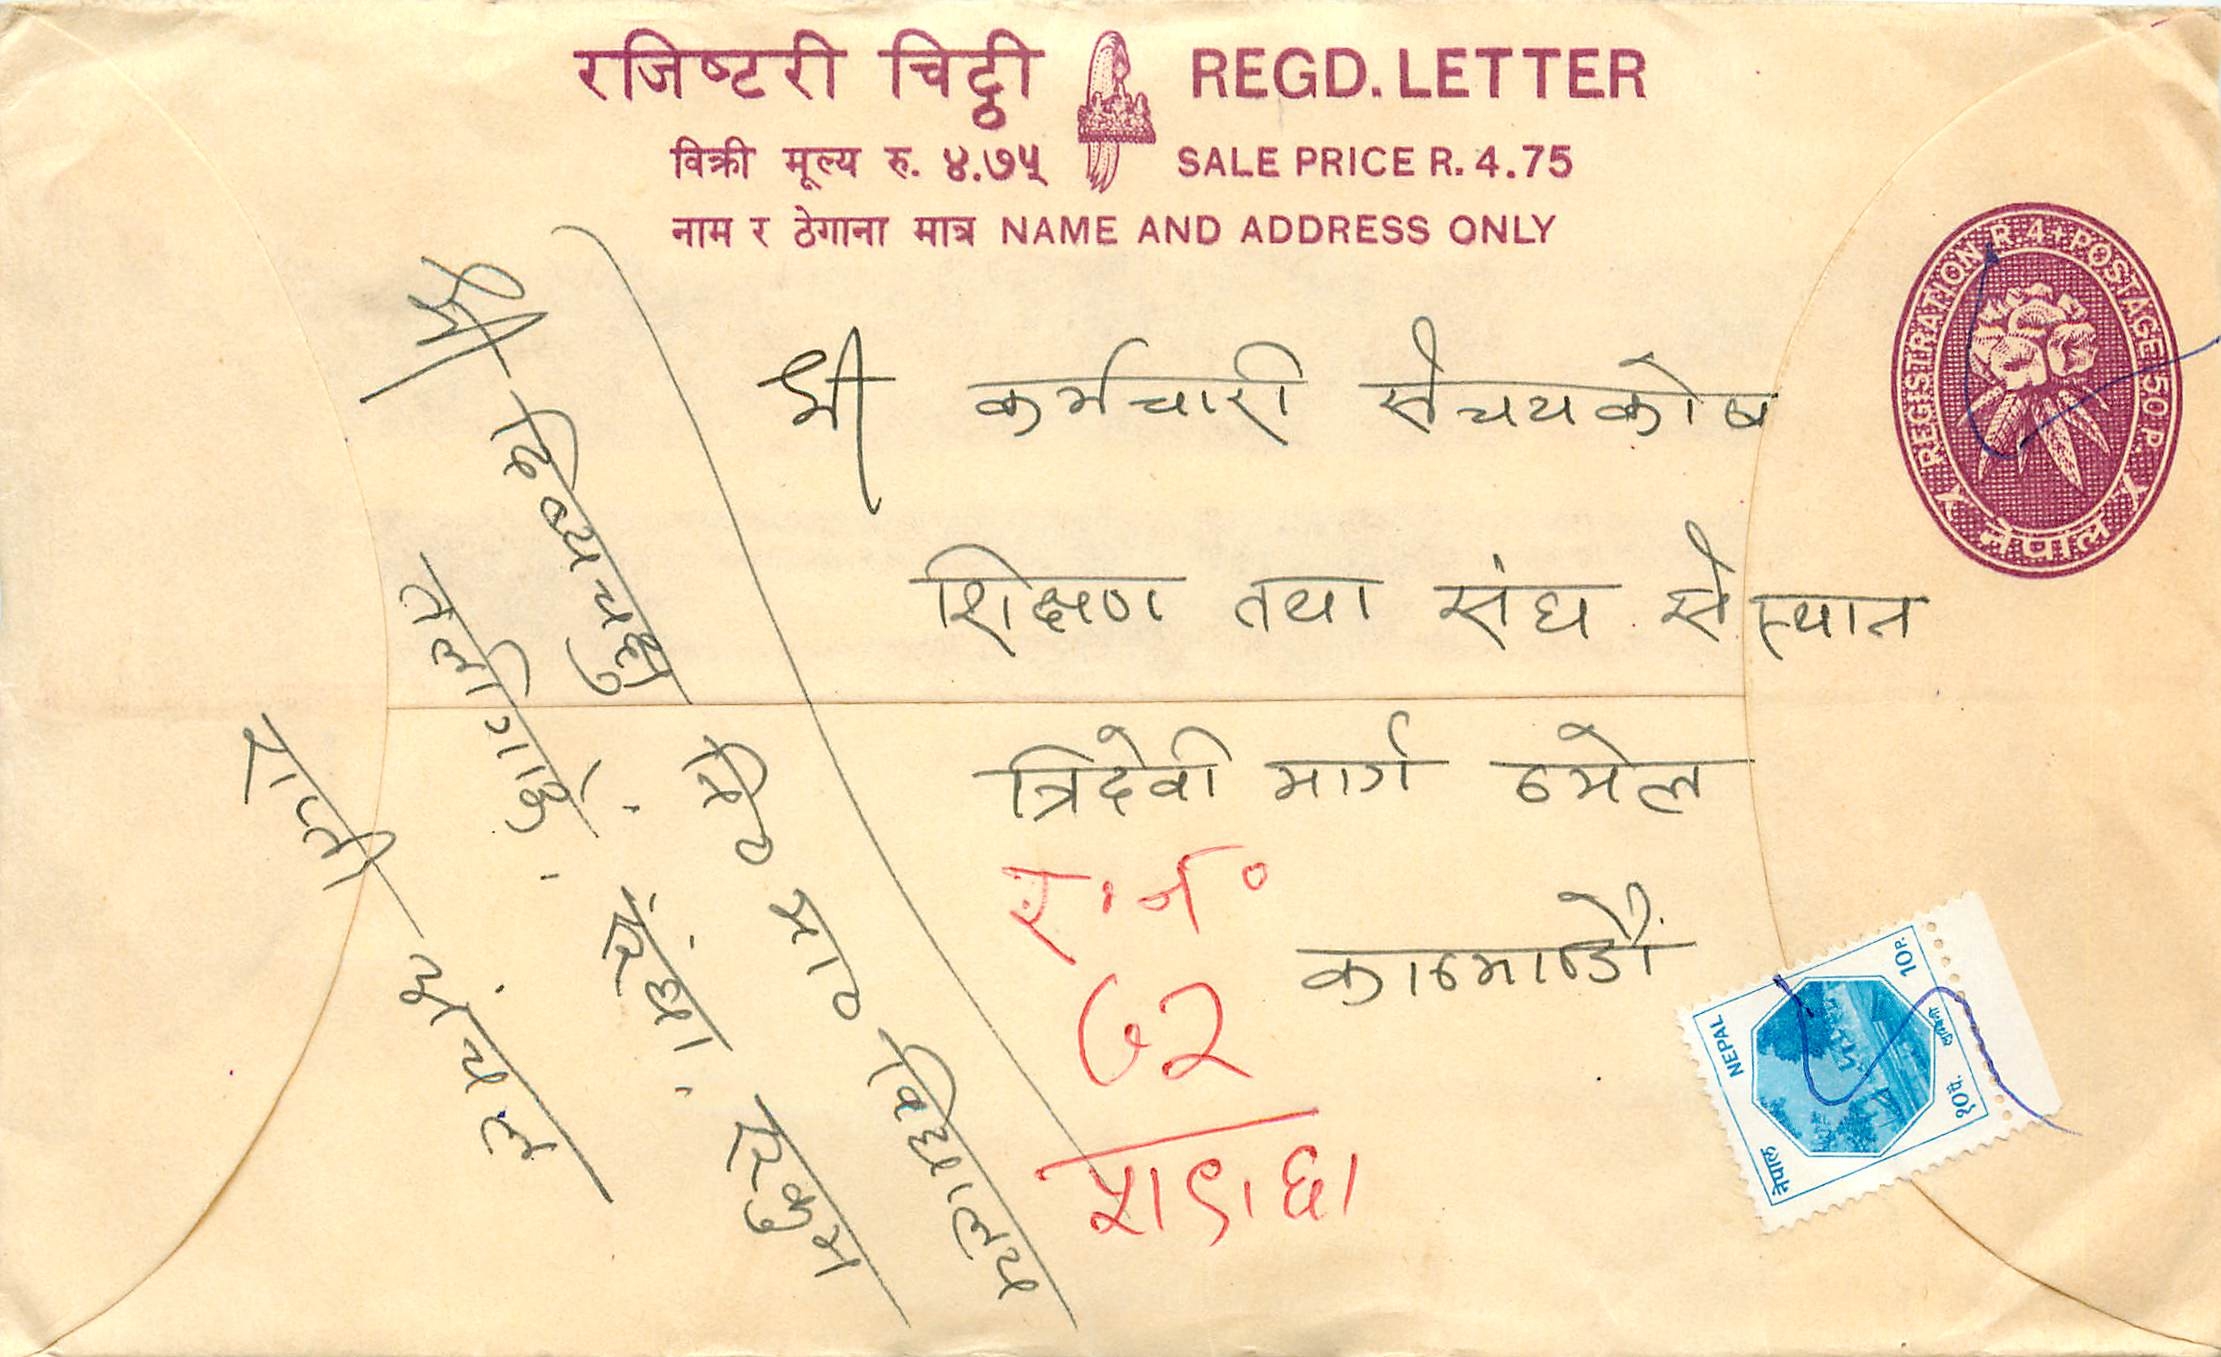 रजिष्टरी चिट्ठी REGD. LETTER
विक्री मूल्य रु. ४.७५ SALE PRICE R. 4.75
नाम र ठेगाना मात्र NAME AND ADDRESS ONLY
REGISTRATION R 4 + POSTAGE 50 P.
नेपाल
श्री कर्मचारी संचयकोष
शिक्षण तथा संघ संस्थान
त्रिदेवी मार्ग ठमेल
काठमाण्डौं
र. नं०
७२
श्री दिव्यचक्षु नि० मा० विद्यालय
रुकुम
राप्ती अंचल
नेपाल NEPAL
१०पै. 10P.